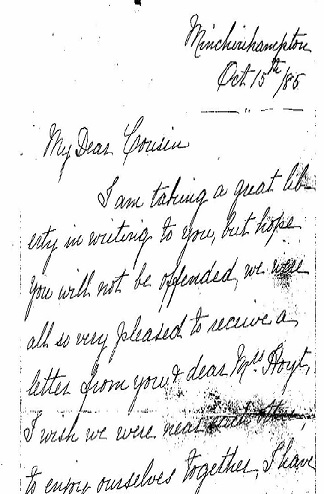 Minchinhampton
Oct. 15th/85
My Dear Cousin
I am taking a great lib-
erty in writing to you, but hope
you will not be offended, we were
all so very pleased to receive a
letter from you & dear Mrs Hoyt,
I wish we were near
to enjoy ourselves together, I have